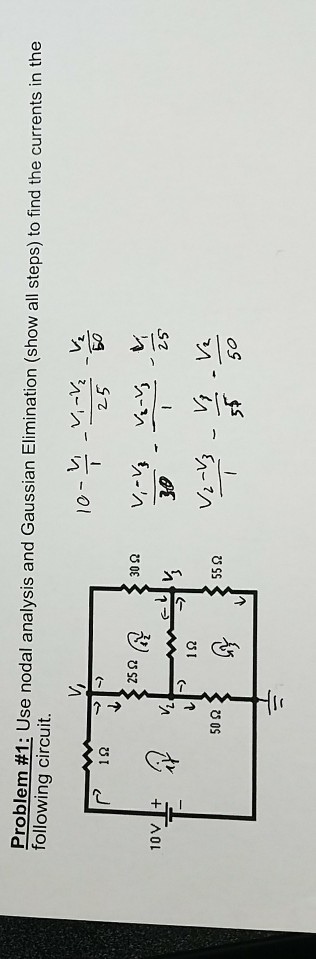 Problem #1: Use nodal analysis and Gaussian Elimination (show all steps) to find the currents in the
following circuit.
V1
1 Ω
25 Ω
30 Ω
10 V
+
-
i1
i2
V2
V3
1 Ω
i3
50 Ω
55 Ω
10 - V1/1 - V1-V2/25 - V2/50
V1-V3/30 - V2-V3/1 - V1/25
V2-V3/1 - V3/55 - V2/50